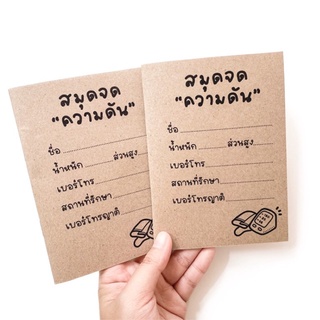 สมุดจด
“ความดัน”
ชื่อ
น้ำหนัก ส่วนสูง
เบอร์โทร
สถานที่รักษา
เบอร์โทรญาติ
สมุดจด
“ความดัน”
ชื่อ
น้ำหนัก ส่วนสูง
เบอร์โทร
สถานที่รักษา
เบอร์โทรญาติ